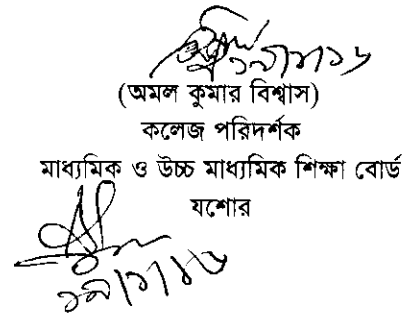 (অমল কুমার বিশ্বাস)
কলেজ পরিদর্শক
মাধ্যমিক ও উচ্চ মাধ্যমিক শিক্ষা বোর্ড
যশোর